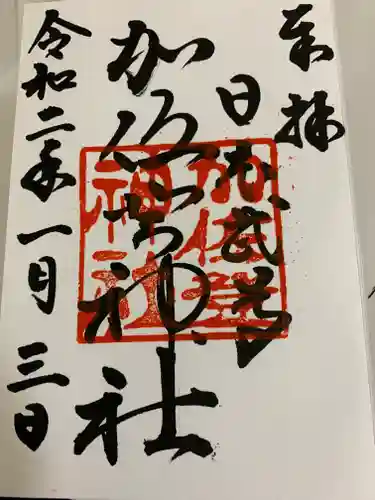 奉拝
日本武尊
加佐登神社
加佐登神社
令和二年一月三日